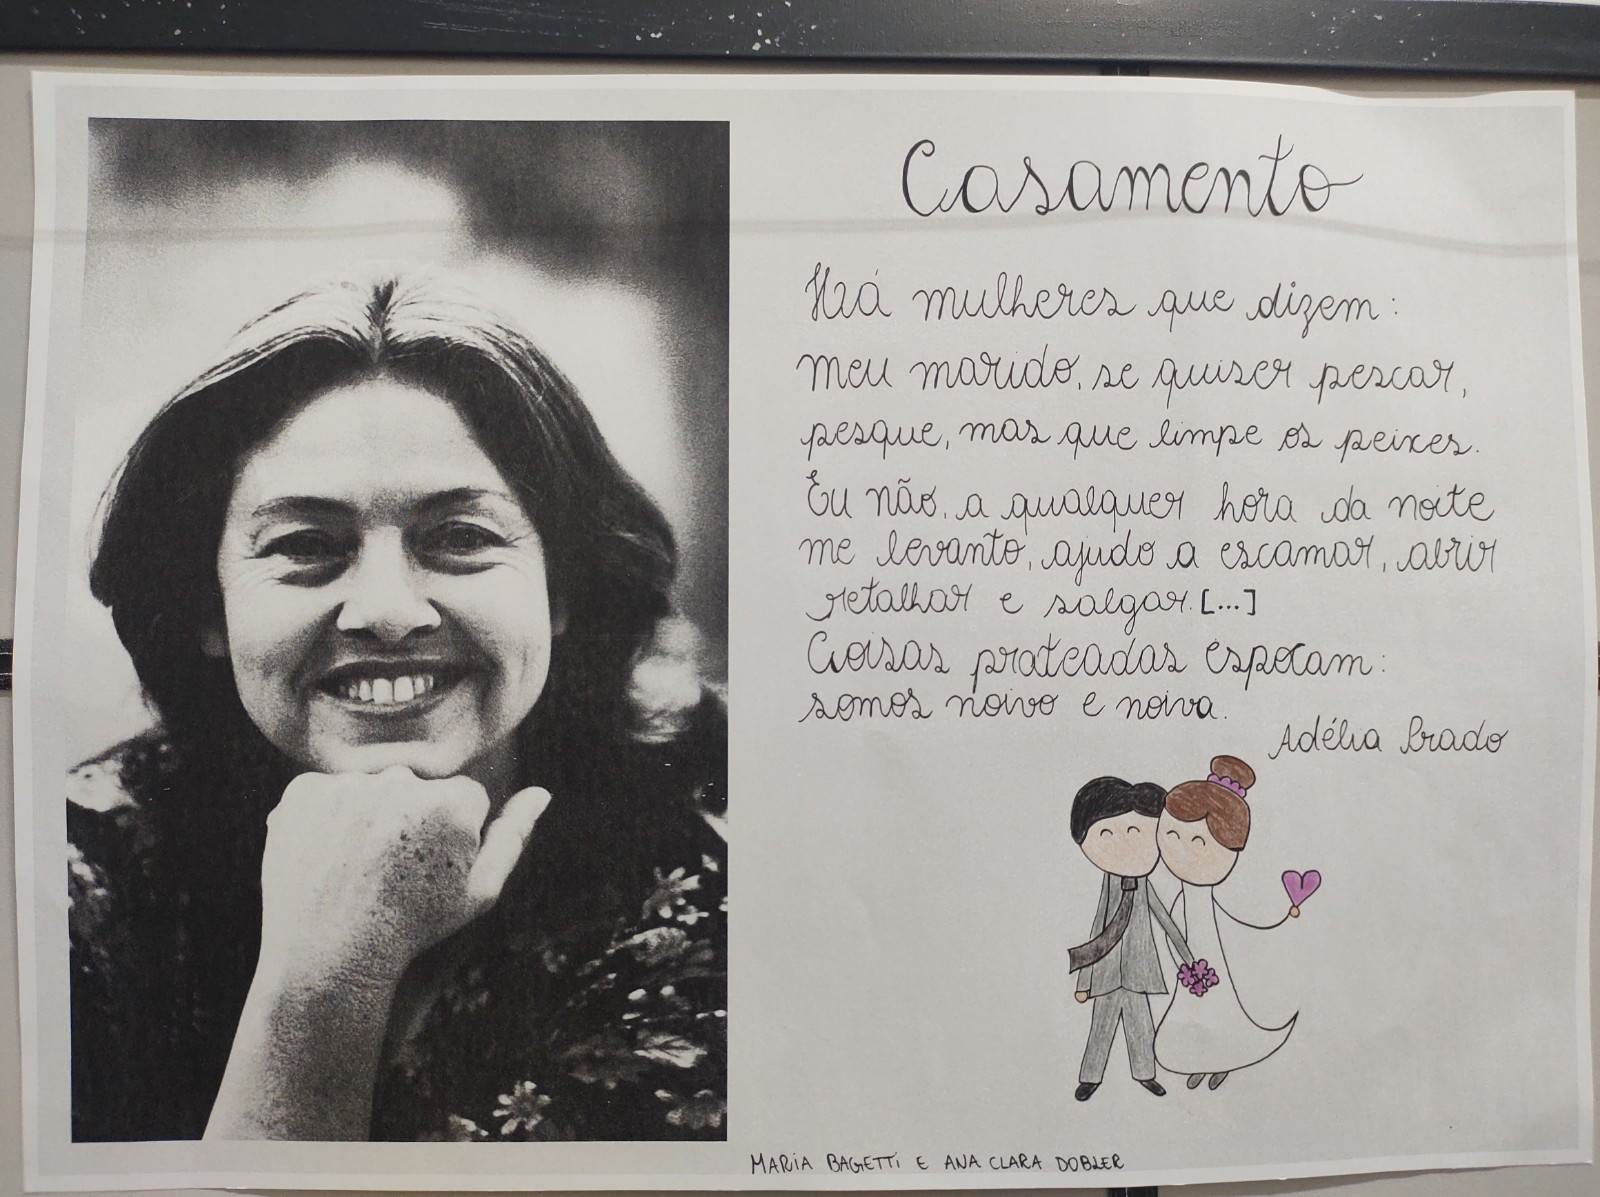 Casamento
Há mulheres que dizem:
meu marido, se quiser pescar,
pesque, mas que limpe os peixes.
Eu não, a qualquer hora da noite
me levanto, ajudo a escamar, abrir
retalhar e salgar. [...]
Coisas prateadas espocam:
somos noivo e noiva.
Adélia Prado
MARIA BAGETTI E ANA CLARA DOBLER